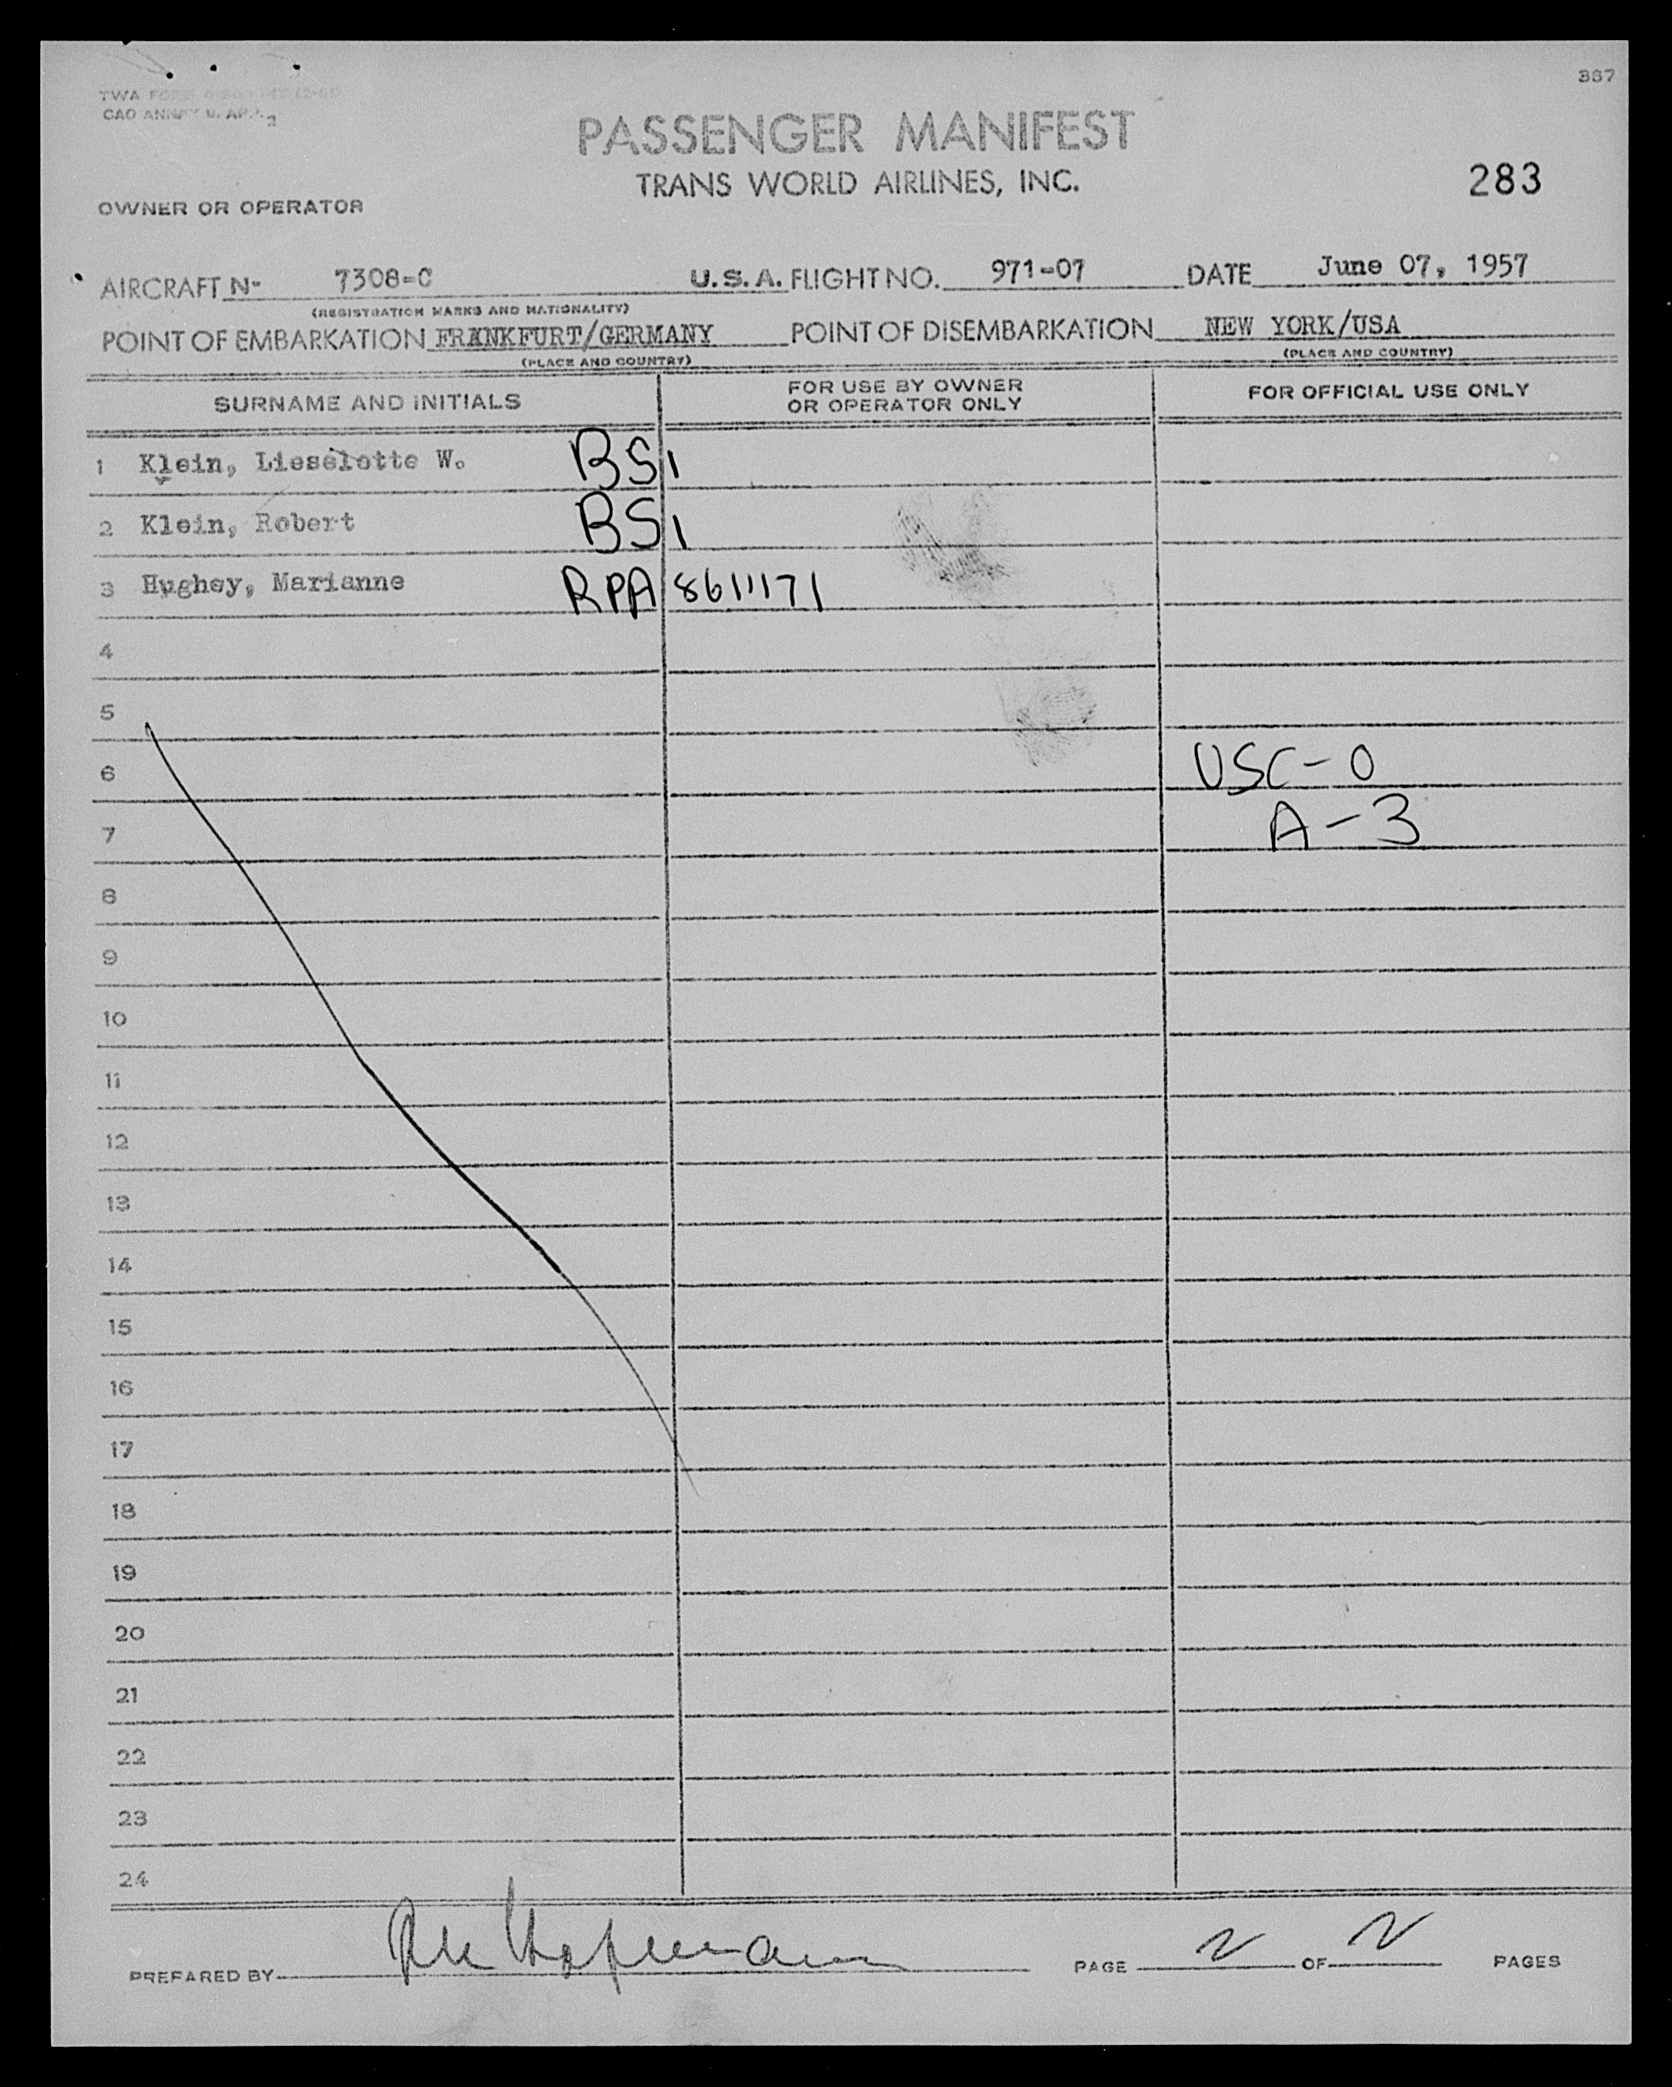 387
TWA FORM
CAO ANNEX 9, APP. 2
PASSENGER MANIFEST
TRANS WORLD AIRLINES, INC.
283
OWNER OR OPERATOR
AIRCRAFT N- 7308-C U.S.A. FLIGHT NO. 971-07 DATE June 07, 1957
(REGISTRATION MARKS AND NATIONALITY)
POINT OF EMBARKATION FRANKFURT/GERMANY POINT OF DISEMBARKATION NEW YORK/USA
(PLACE AND COUNTRY) (PLACE AND COUNTRY)
SURNAME AND INITIALS FOR USE BY OWNER OR OPERATOR ONLY FOR OFFICIAL USE ONLY
1 Klein, Lieselotte W. BS1
2 Klein, Robert BS1
3 Hughey, Marianne RPA 8611171
4
5
6 USC-0
7 A-3
8
9
10
11
12
13
14
15
16
17
18
19
20
21
22
23
24
PREPARED BY PAGE 2 OF 2 PAGES